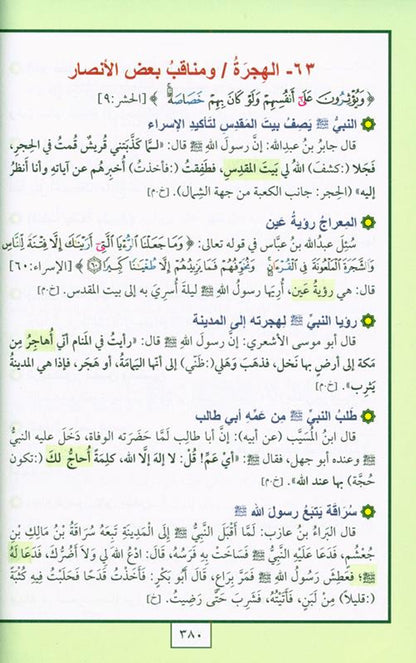 ٦٣- الهِجرَةُ / ومناقبُ بعض الأنصار
﴿ وَيُؤْثِرُونَ عَلَىٰ أَنفُسِهِمْ وَلَوْ كَانَ بِهِمْ خَصَاصَةٌ ﴾ [الحشر:٩]
النبيُّ ﷺ يَصِفُ بيتَ المَقدِس لتأكيدِ الإسراء
قال جابرُ بنُ عبدِالله: إنَّ رسولَ اللهِ ﷺ قال: «لـمَّا كَذَّبَتني قُريشٌ قُمتُ في الحِجرِ،
فَجَلا (:كشفَ) اللهُ لي بَيتَ المقدِسِ، فطَفِقتُ (:فأخذتُ) أُخبِرُهم عن آياتِه وأنا أنظُرُ
إليه» (الحجر: جانب الكعبة من جهة الشمال). [خ.م]
المعراجُ رؤيةُ عَين
سُئِلَ عبدُالله بنُ عبَّاس في قوله تعالى: ﴿ وَمَا جَعَلْنَا الرُّءْيَا الَّتِي أَرَيْنَاكَ إِلَّا فِتْنَةً لِلنَّاسِ
وَالشَّجَرَةَ الْمَلْعُونَةَ فِي الْقُرْءَانِ وَنُخَوِّفُهُمْ فَمَا يَزِيدُهُمْ إِلَّا طُغْيَانًا كَبِيرًا ﴾ [الإسراء:٦٠]
قال: هي رؤيةُ عَين، أُريَها رسولُ اللهِ ﷺ ليلةَ أُسرِيَ به إلى بيت المقدس. [خ]
رؤيا النبيِّ ﷺ لِهجرتِه إلى المدينة
قال أبو موسى الأشعري: إنَّ رسولَ اللهِ ﷺ قال: «رأيتُ في المَنام أنّي أُهاجِرُ مِن
مَكة إلى أرضٍ بها نَخل، فذهَبَ وَهَلي(:ظَنّي) إلى أنّها اليَمامَةُ، أو هَجَر، فإذا هي المدينةُ
يَثرِب». [خ.م]
طَلَبُ النبيِّ ﷺ مِن عَمِّه أبي طالب
قال ابنُ المُسَيَّب (عن أبيه): إنَّ أبا طالِب لمَّا حَضَرَته الوفاة، دَخَلَ عليه النبيُّ
ﷺ وعنده أبو جهل، فقال ﷺ: «أيْ عَمِّ! قُلْ: لا إلهَ إلّا الله، كلِمَةً أُحاجُّ لكَ (:تكون
حُجَّة) بها عندَ الله». [خ.م]
سُرَاقَة يَتبَعُ رسولَ الله ﷺ
قال البَراءُ بنُ عازب: لَمَّا أَقْبَلَ النَّبِيُّ ﷺ إِلَى الْمَدِينَةِ تَبِعَهُ سُرَاقَةُ بْنُ مَالِكِ بْنِ
جُعْشُمٍ، فَدَعَا عَلَيْهِ النَّبِيُّ ﷺ فَسَاخَتْ بِهِ فَرَسُهُ، قَالَ: ادْعُ اللهَ لِي وَلَا أَضُرُّكَ، فَدَعَا لَهُ
ﷺ؛ فَعَطِشَ رَسُولُ اللهِ ﷺ فَمَرَّ بِرَاعٍ، قَالَ أَبُو بَكْرٍ: فَأَخَذْتُ قَدَحًا فَحَلَبْتُ فِيهِ كُثْبَةً
(:قليلاً) مِنْ لَبَنٍ، فَأَتَيْتُهُ، فَشَرِبَ حَتَّى رَضِيتُ. [خ]
٣٨٠